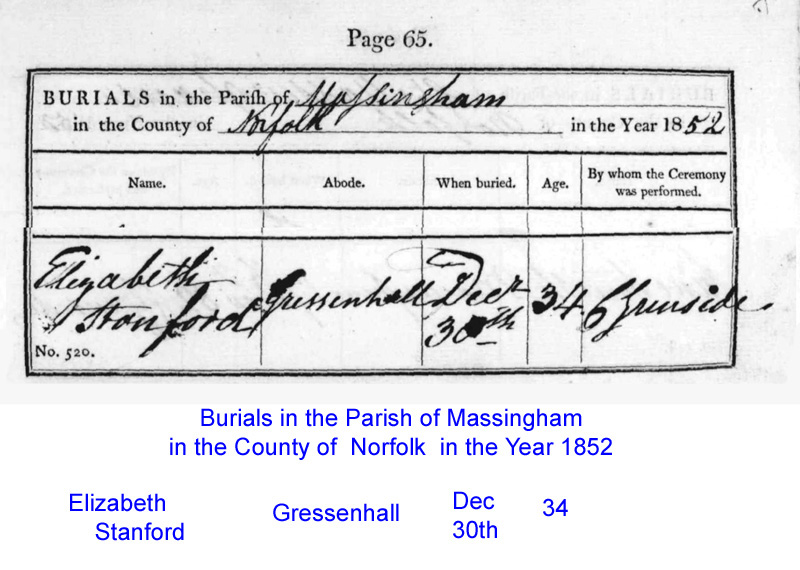 Page 65.
BURIALS in the Parish of Massingham
in the County of Norfolk in the Year 1852
Name. Abode. When buried. Age. By whom the Ceremony was performed.
Elizabeth Gressenhall Decr 34
Stanford 30th
No. 520.
Burials in the Parish of Massingham
in the County of Norfolk in the Year 1852
Elizabeth Gressenhall Dec 34
Stanford 30th